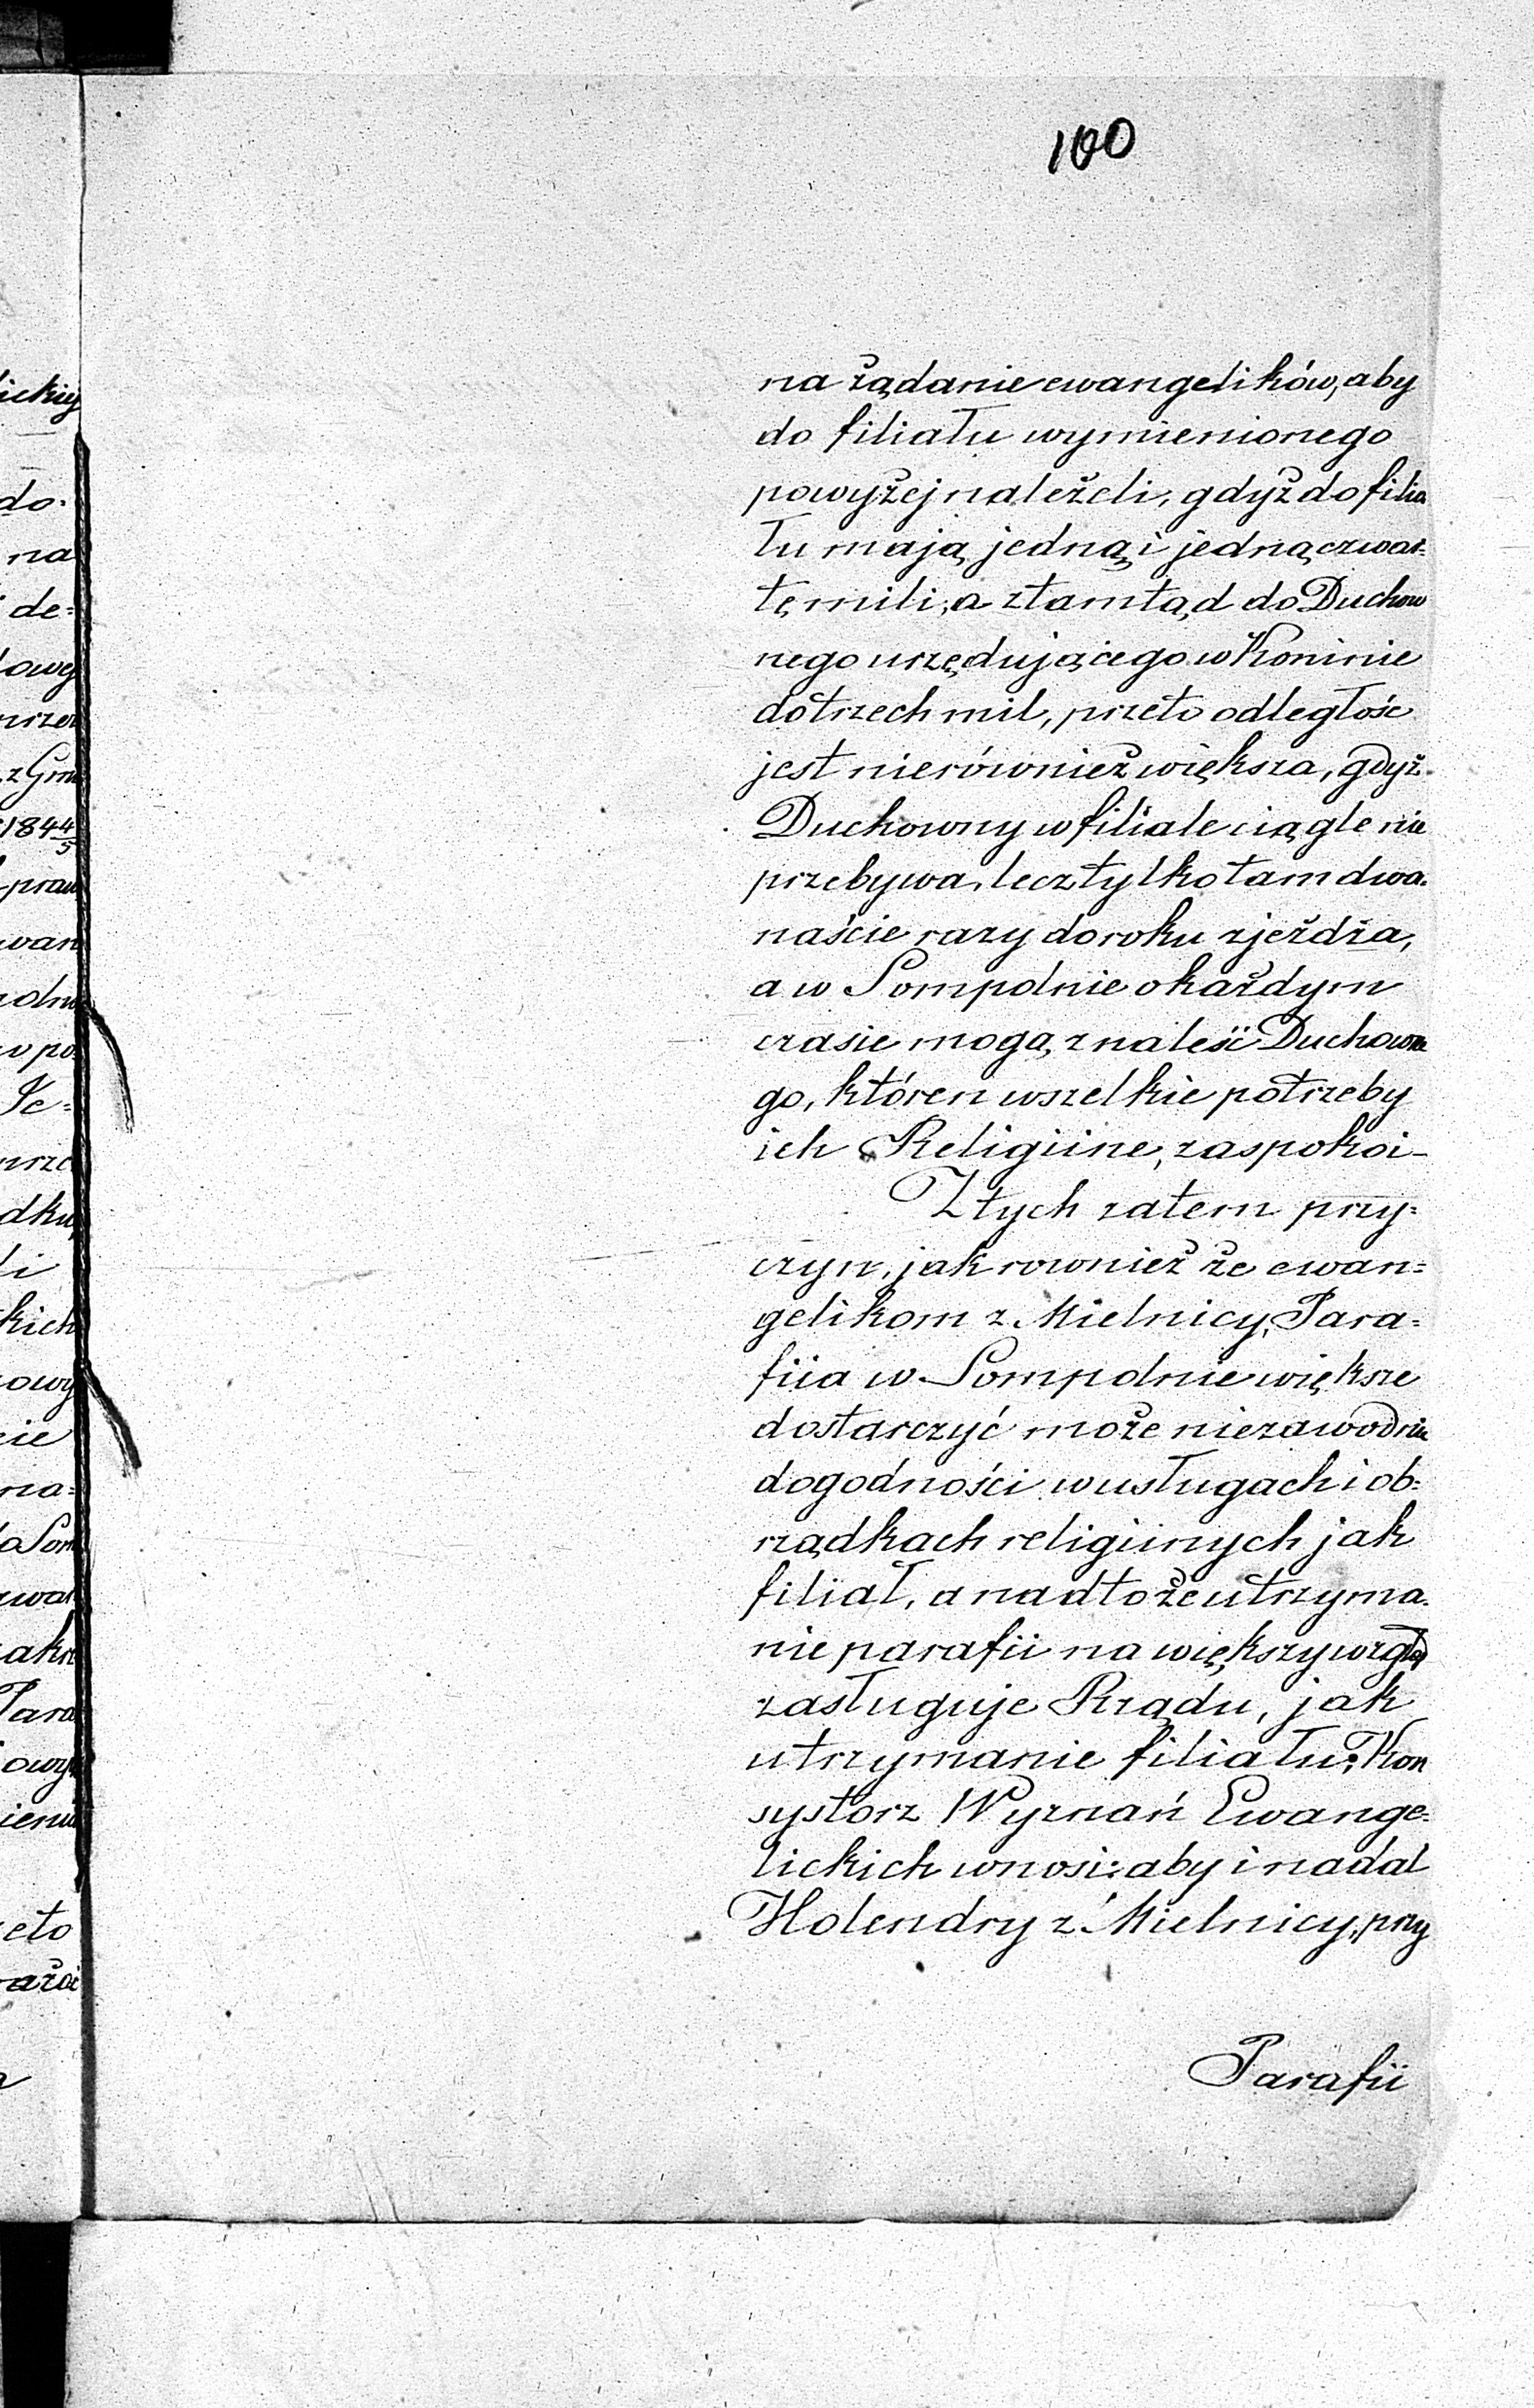 100
na żądanie ewangelików, aby
do filiału wymienionego
powyżej należeli, gdyż do filia
łu mają jedną i jedną czwar=
tę mili, a ztamtąd do Duchow
nego urzędującego w Koninie
do trzech mil, przeto odległość
jest nierównież większa, gdyż
Duchowny w filiale ciągle nie
przebywa, lecz tylko tam dwa=
naście razy do roku zjeżdża,
a w Sompolnie o każdym
czasie mogą znaleść Duchowne
go, któren wszelkie potrzeby
ich Religiine, zaspokoi —
Z tych zatem przy=
czyn, jak rownież że ewan=
gelikom z Mielnicy, Para=
fiia w Sompolnie większe
dostarczyć może niezawodnie
dogodności w usługach i ob=
rządkach religiinych jak
filiał, a nadto że utrzyma=
nie parafii na większy wzgląd
zasługuje Rządu, jak
utrzymanie filiału; Kon
systorz Wyznań Ewange=
lickich wnosi: aby i nadal
Holendry z Mielnicy, przy
Parafii
lickiej
do=
na
de=
owej
przez
z Gmi
1844/5
praw
wan
w po
Je=
dku,
li
kich
cie
na=
do Som
Para
ieniu